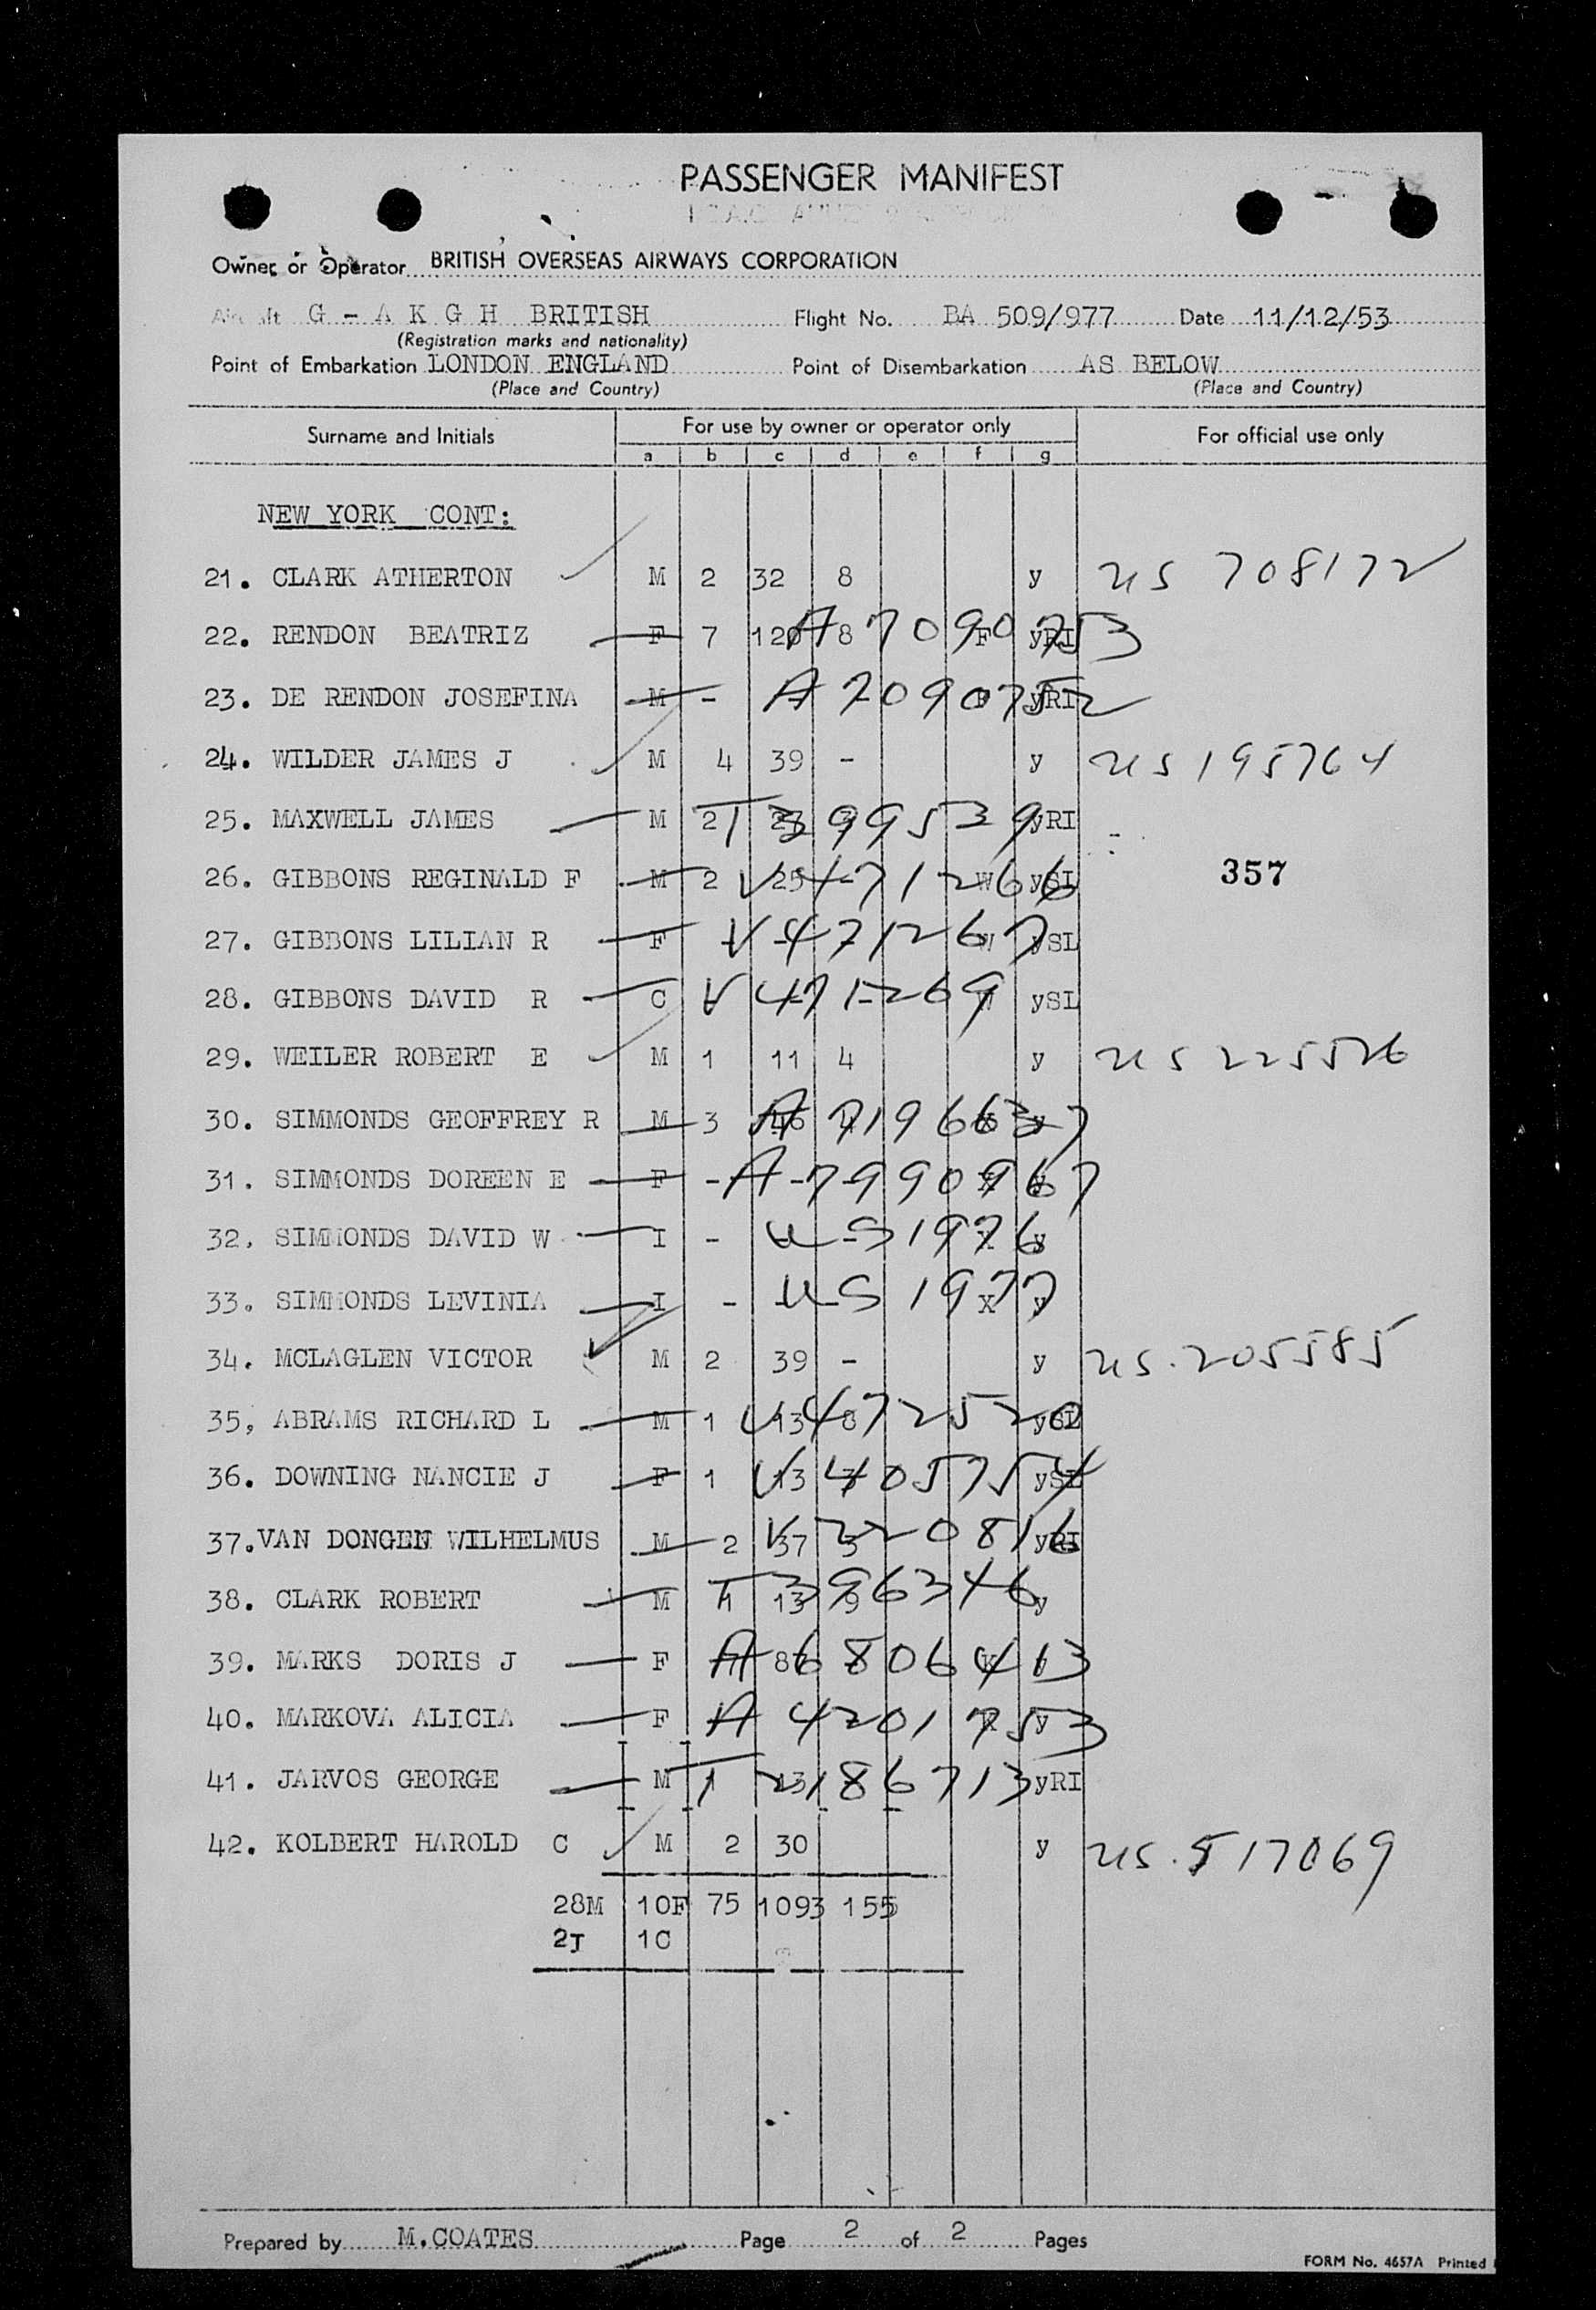 PASSENGER MANIFEST
Owner or Operator BRITISH OVERSEAS AIRWAYS CORPORATION
G - A K G H BRITISH Flight No. BA 509/977 Date 11/12/53
(Registration marks and nationality)
Point of Embarkation LONDON ENGLAND Point of Disembarkation AS BELOW
(Place and Country) (Place and Country)
Surname and Initials For use by owner or operator only For official use only
a b c d e f g
NEW YORK CONT:
21. CLARK ATHERTON M 2 32 8 y US 708172
22. RENDON BEATRIZ F 7 120 8 F yRI A7090753
23. DE RENDON JOSEFINA M - yRI A7090752
24. WILDER JAMES J M 4 39 - y US 195764
25. MAXWELL JAMES M 2 yRI T3995539
26. GIBBONS REGINALD F M 2 25 - W ySL V4712666
357
27. GIBBONS LILIAN R F - - W ySL V471267
28. GIBBONS DAVID R C - - W ySL V471269
29. WEILER ROBERT E M 1 11 4 y US 225526
30. SIMMONDS GEOFFREY R M 3 46 y A7196637
31. SIMMONDS DOREEN E F - - - A7990967
32. SIMMONDS DAVID W I - - y US 1976
33. SIMMONDS LEVINIA I - - - X y US 1977
34. MCLAGLEN VICTOR M 2 39 - y US.205585
35, ABRAMS RICHARD L M 1 13 8 ySL V4725520
36. DOWNING NANCIE J F 1 13 ySL V405754
37.VAN DONGEN WILHELMUS M 2 37 3 yRI V220816
38. CLARK ROBERT M 1 13 9 y T396346
39. MARKS DORIS J F 8 K A6806413
40. MARKOVA ALICIA F y A4201753
41. JARVOS GEORGE M 1 yRI T2186713
42. KOLBERT HAROLD C M 2 30 y US.517069
28M 10F 75 1093 155
2J 1C
Prepared by M.COATES Page 2 of 2 Pages
FORM No. 4657A Printed